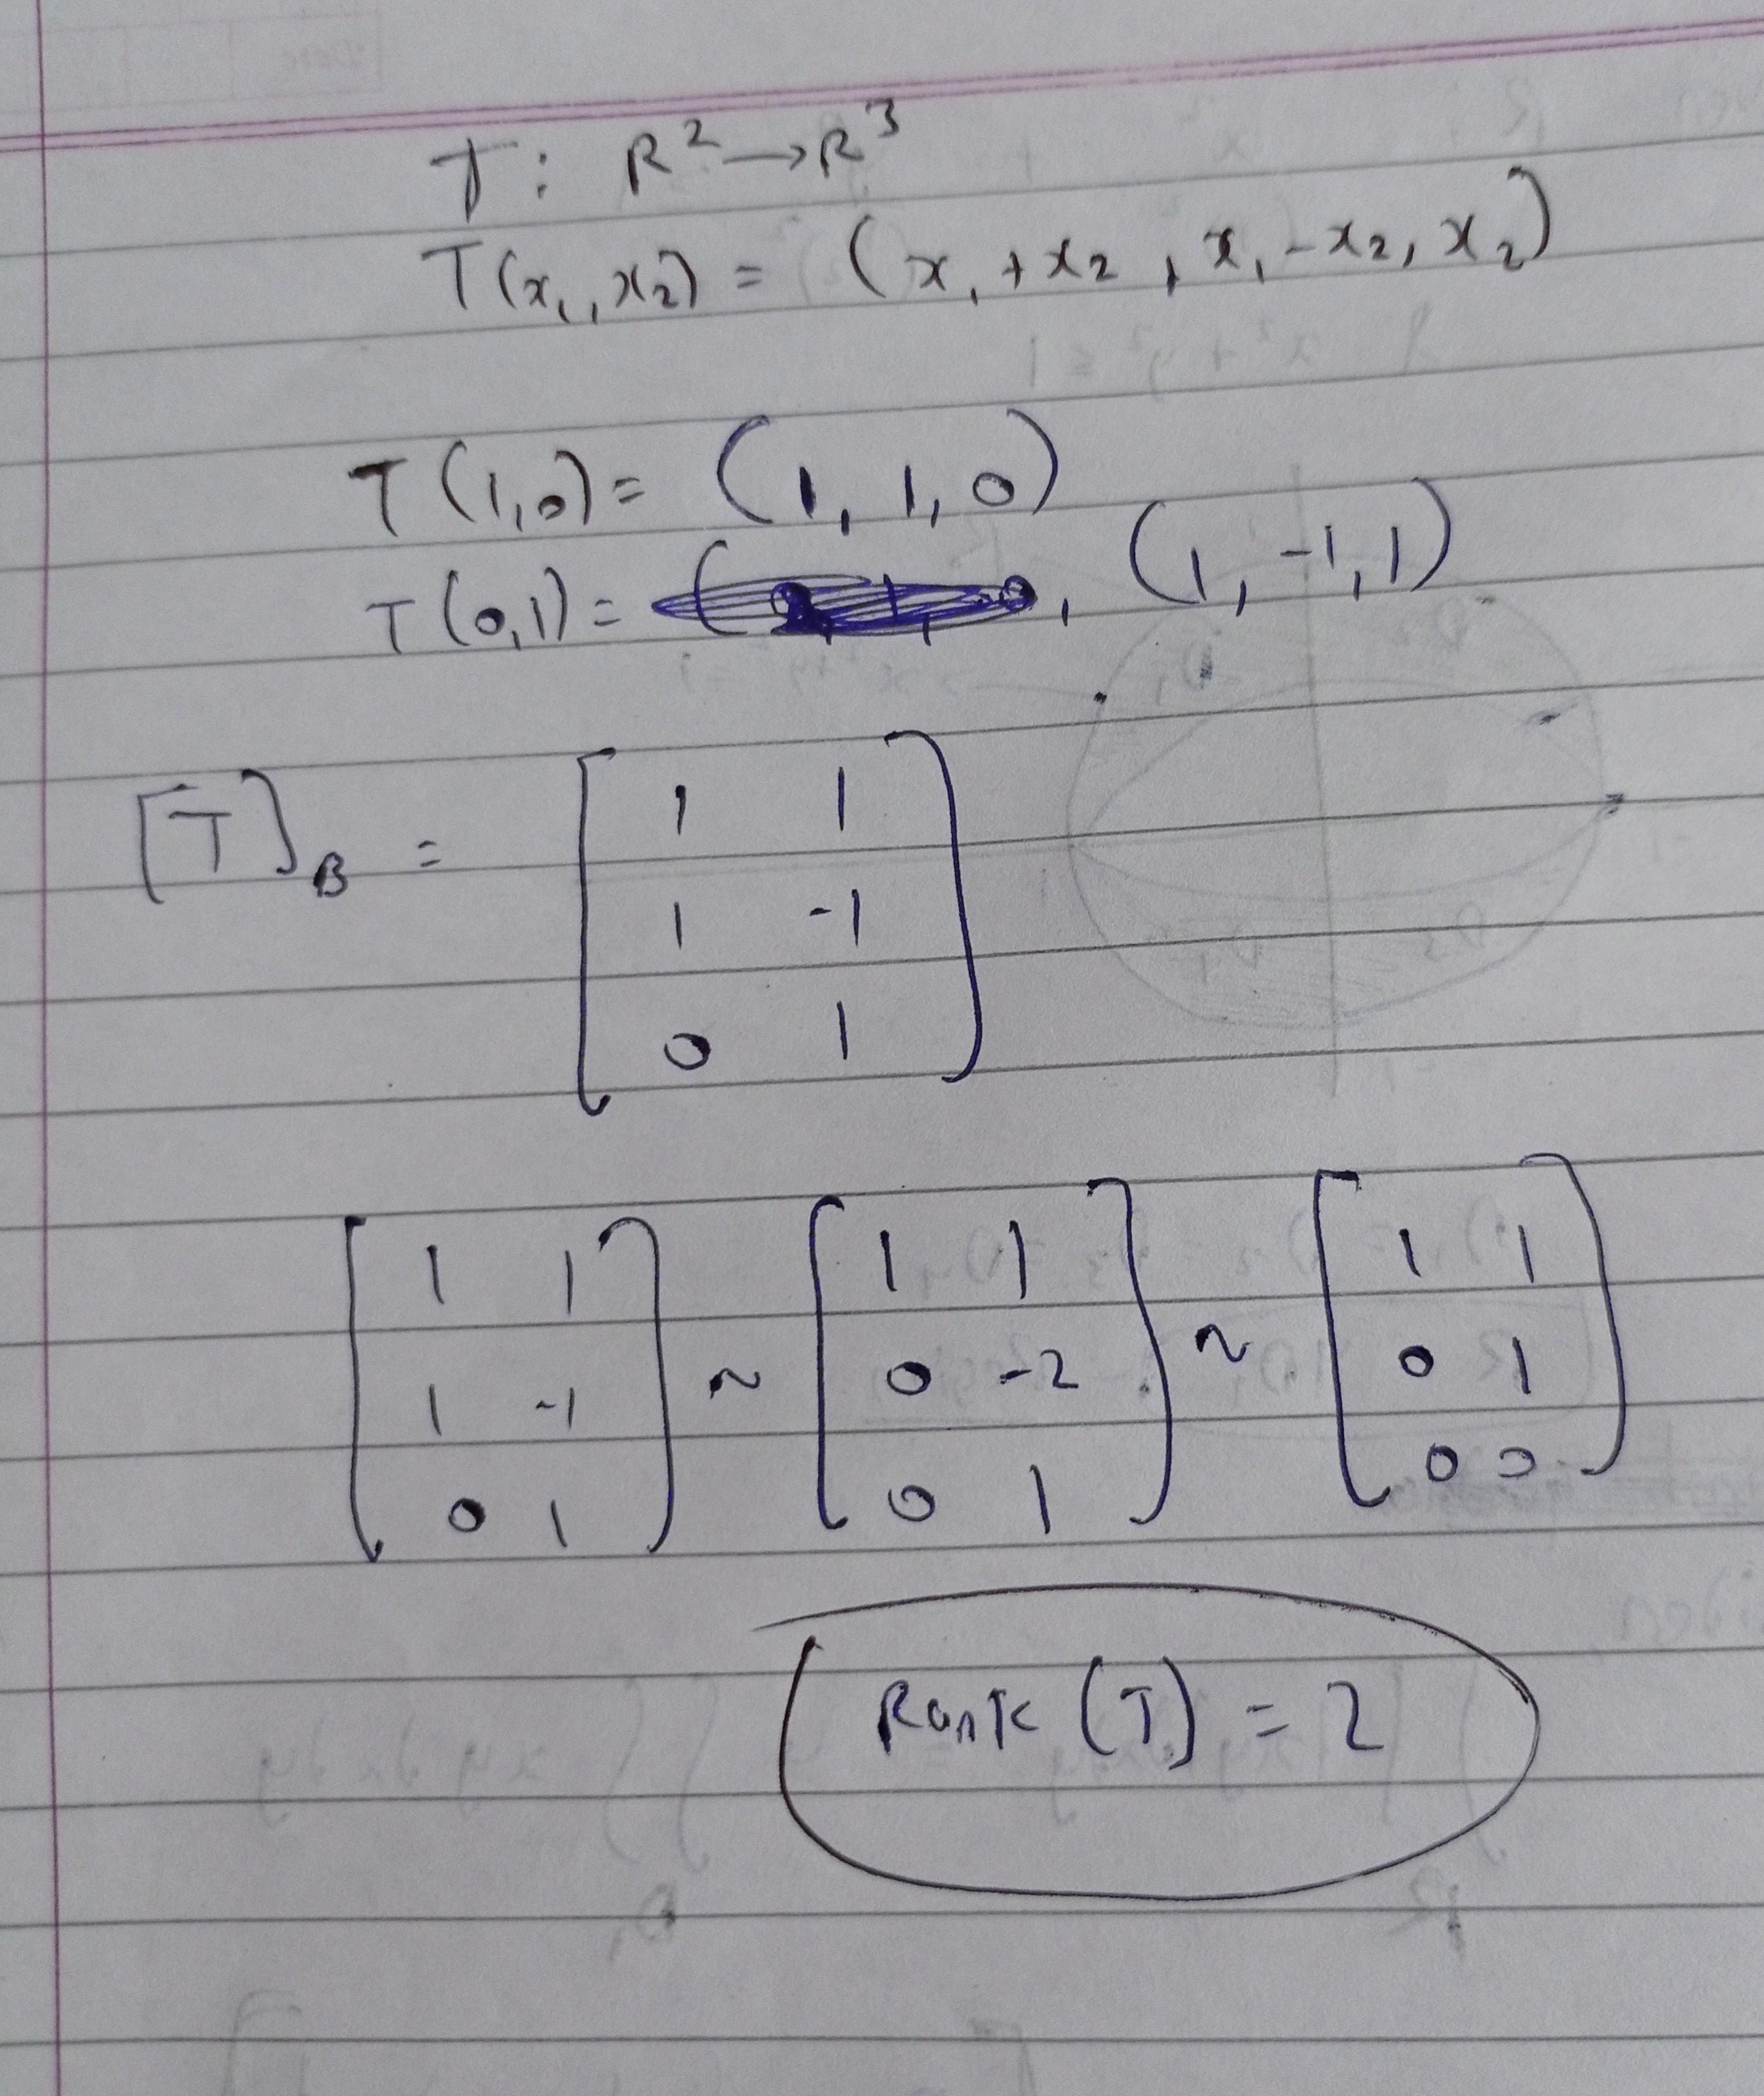 T : R² → R³
T(x₁, x₂) = (x₁ + x₂, x₁ - x₂, x₂)
T(1,0) = (1, 1, 0)
T(0,1) = , (1, -1, 1)
[T]_B = [1 1; 1 -1; 0 1]
[1 1; 1 -1; 0 1] ~ [1 1; 0 -2; 0 1] ~ [1 1; 0 1; 0 0]
Rank (T) = 2